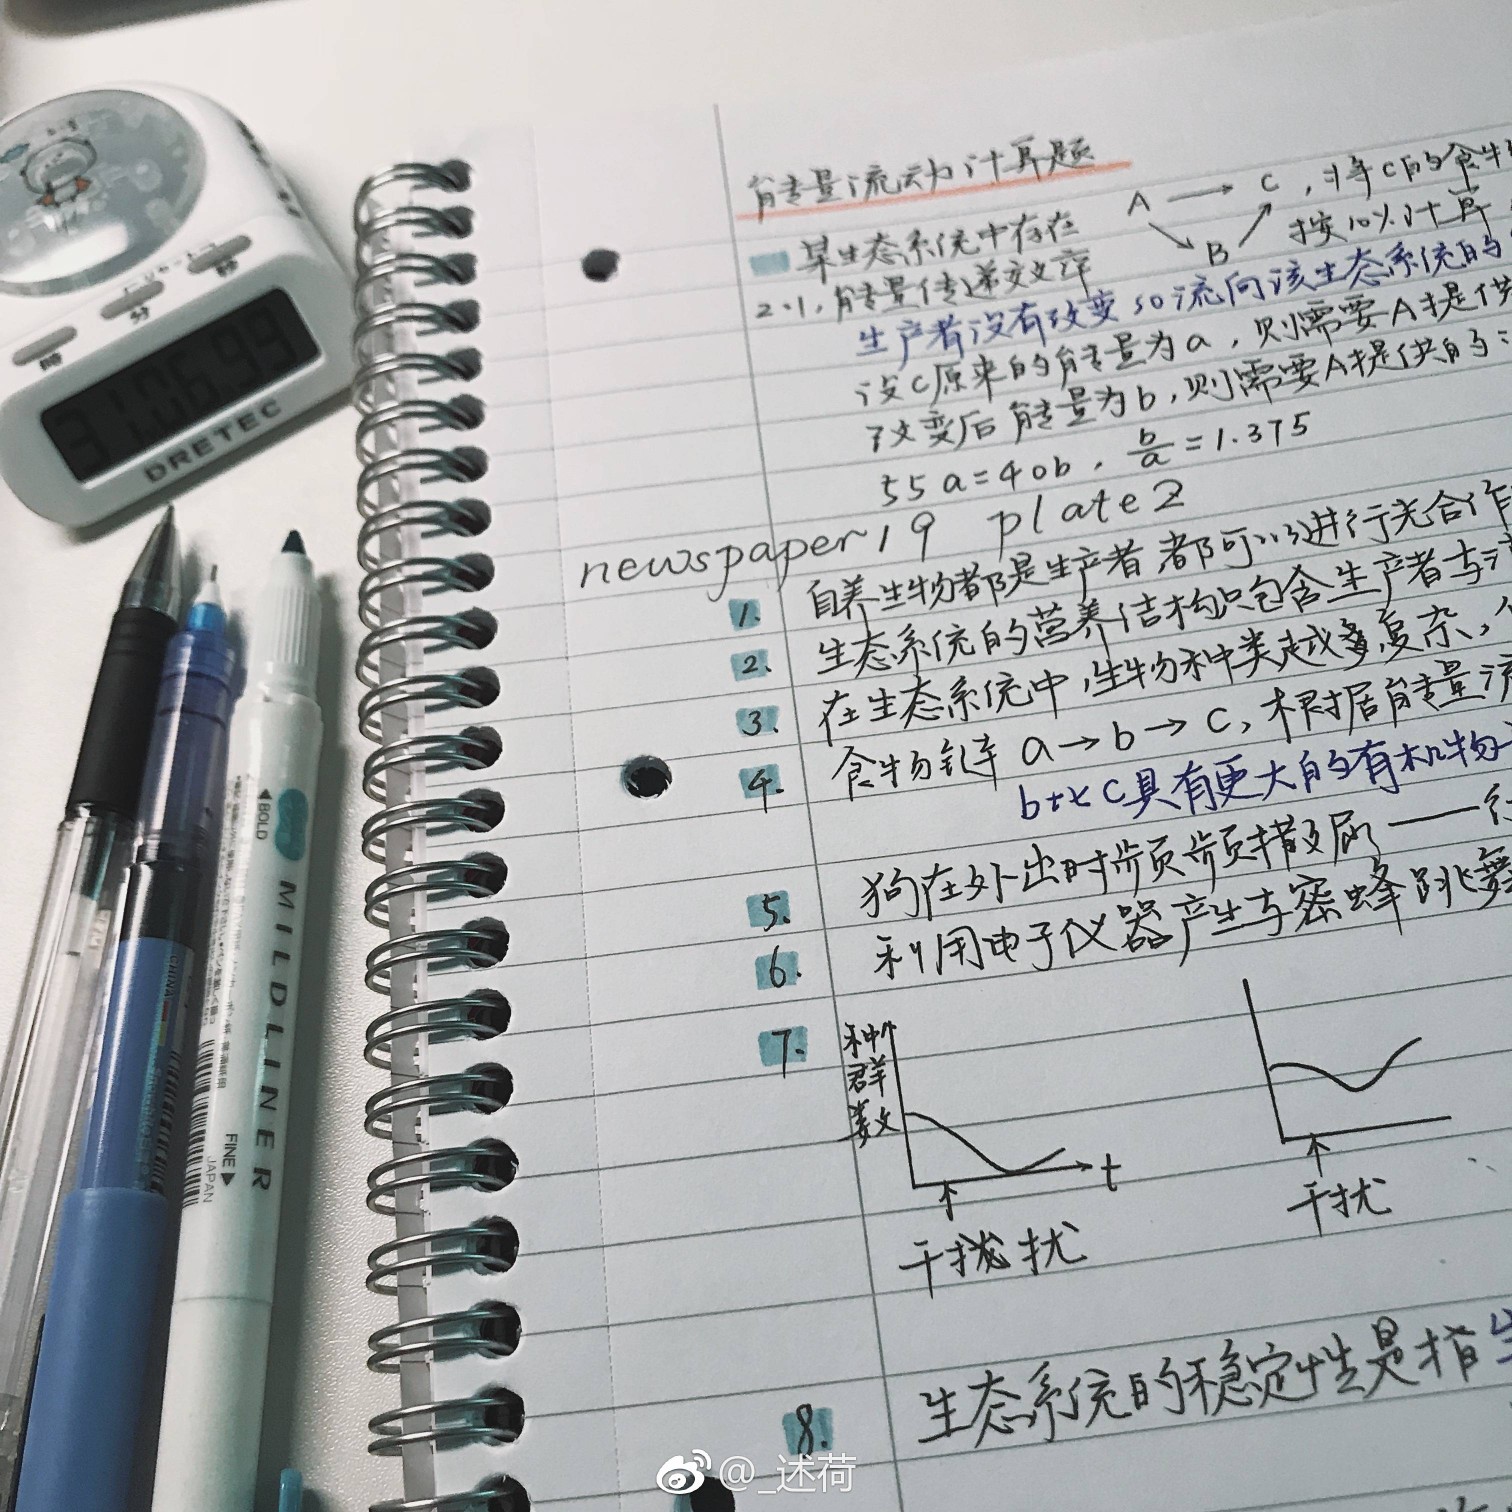 能量流动计算题
某生态系统中存在
A → C，将C的食物
B
按10%计算
2:1，能量传递效率
生产者没有改变 so 流向该生态系统的
设C原来的能量为a，则需要A提供
改变后能量为b，则需要A提供的
55a=40b，b/a=1.375
newspaper19 plate2
1. 自养生物都是生产者，都可以进行光合作
2. 生态系统的营养结构只包含生产者与消
3. 在生态系统中，生物种类越多，复杂，
4. 食物链 a→b→c，根据能量流
b比c具有更大的有机物
5. 狗在外出时频频撒尿——
6. 利用电子仪器产生与蜜蜂跳舞
7. 种群数
t
干扰
干扰
8. 生态系统的稳定性是指生
DRETEC
時
分
秒
BOLD
MILDLINER
FINE
JAPAN
CHINA
@_迷荷